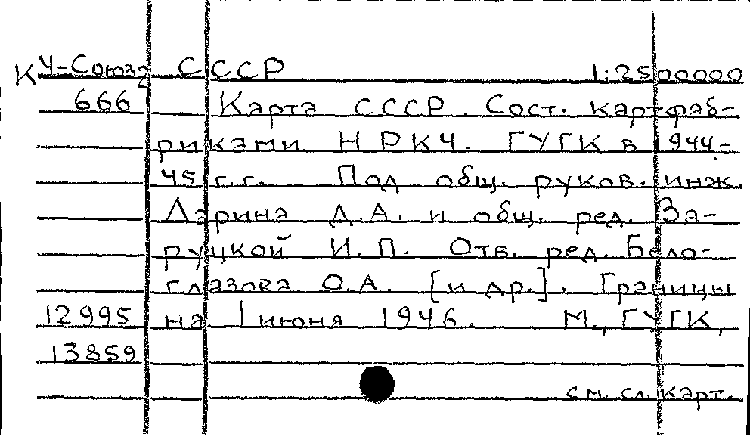 К У-Союз2 СССР 1:2500000
666 Карта СССР. Сост. картфаб-
риками НРКЧ. ГУГК в 1944-
45 г.г. Под общ. руков. инж.
Ларина Д.А. и общ. ред. За-
руцкой И.П. Отв. ред. Бело-
глазова О.А. [и др.]. Границы
12995 на 1 июня 1946. М., ГУГК,
13859
см. сл. карт.